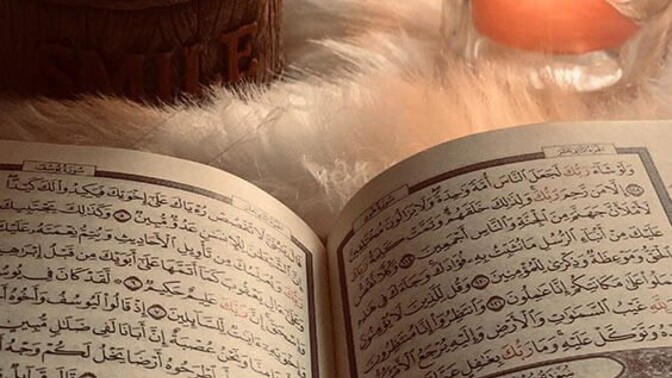 SMILE
وَلَوْ شَآءَ رَبُّكَ لَجَعَلَ ٱلنَّاسَ أُمَّةً وَٰحِدَةً وَلَا يَزَالُونَ مُخْتَلِفِينَ
١١٨ إِلَّا مَن رَّحِمَ رَبُّكَ وَلِذَٰلِكَ خَلَقَهُمْ وَتَمَّتْ كَلِمَةُ رَبِّكَ
لَأَمْلَأَنَّ جَهَنَّمَ مِنَ ٱلْجِنَّةِ وَٱلنَّاسِ أَجْمَعِينَ ١١٩ وَكُلًّا نَّقُصُّ
عَلَيْكَ مِنْ أَنۢبَآءِ ٱلرُّسُلِ مَا نُثَبِّتُ بِهِۦ فُؤَادَكَ وَجَآءَكَ فِى هَٰذِهِ
ٱلْحَقُّ وَمَوْعِظَةٌ وَذِكْرَىٰ لِلْمُؤْمِنِينَ ١٢٠ وَقُل لِّلَّذِينَ لَا يُؤْمِنُونَ
ٱعْمَلُوا۟ عَلَىٰ مَكَانَتِكُمْ إِنَّا عَٰمِلُونَ ١٢١ وَٱنتَظِرُوٓا۟ إِنَّا مُنتَظِرُونَ
غَيْبُ ٱلسَّمَٰوَٰتِ وَٱلْأَرْضِ وَإِلَيْهِ يُرْجَعُ ٱلْأَمْرُ
وَتَوَكَّلْ عَلَيْهِ وَمَا رَبُّكَ بِغَٰفِلٍ عَمَّا
سُورَةُ يُوسُفَ
لَا تَقْصُصْ رُءْيَاكَ عَلَىٰٓ إِخْوَتِكَ فَيَكِيدُوا۟ لَكَ كَيْدًا
إِنَّ ٱلشَّيْطَٰنَ لِلْإِنسَٰنِ عَدُوٌّ مُّبِينٌ ٥ وَكَذَٰلِكَ يَجْتَبِيكَ
رَبُّكَ وَيُعَلِّمُكَ مِن تَأْوِيلِ ٱلْأَحَادِيثِ وَيُتِمُّ نِعْمَتَهُۥ عَلَيْكَ
وَعَلَىٰٓ ءَالِ يَعْقُوبَ كَمَآ أَتَمَّهَا عَلَىٰٓ أَبَوَيْكَ مِن قَبْلُ إِبْرَٰهِيمَ
وَإِسْحَٰقَ إِنَّ رَبَّكَ عَلِيمٌ حَكِيمٌ ٦ لَّقَدْ كَانَ فِى يُوسُفَ
وَإِخْوَتِهِۦٓ ءَايَٰتٌ لِّلسَّآئِلِينَ ٧ إِذْ قَالُوا۟ لَيُوسُفُ وَأَخُوهُ
وَنَحْنُ عُصْبَةٌ إِنَّ أَبَانَا لَفِى ضَلَٰلٍ مُّبِينٍ
ٱطْرَحُوهُ أَرْضًا يَخْلُ لَكُمْ وَجْهُ